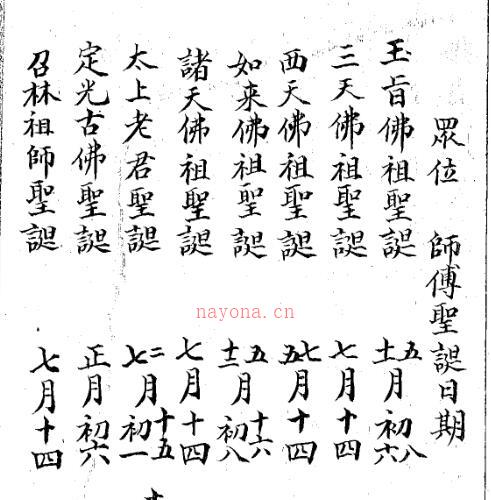 眾位 師傅聖誕日期
玉旨佛祖聖誕 十一月初六 五 八
三天佛祖聖誕 七月十四
西天佛祖聖誕 五七月十四
如来佛祖聖誕 十二月初八 五 十六
諸天佛祖聖誕 七月十四
太上老君聖誕 七月初一 二 十五
定光古佛聖誕 正月初六
召林祖師聖誕 七月十四
nayona.cn